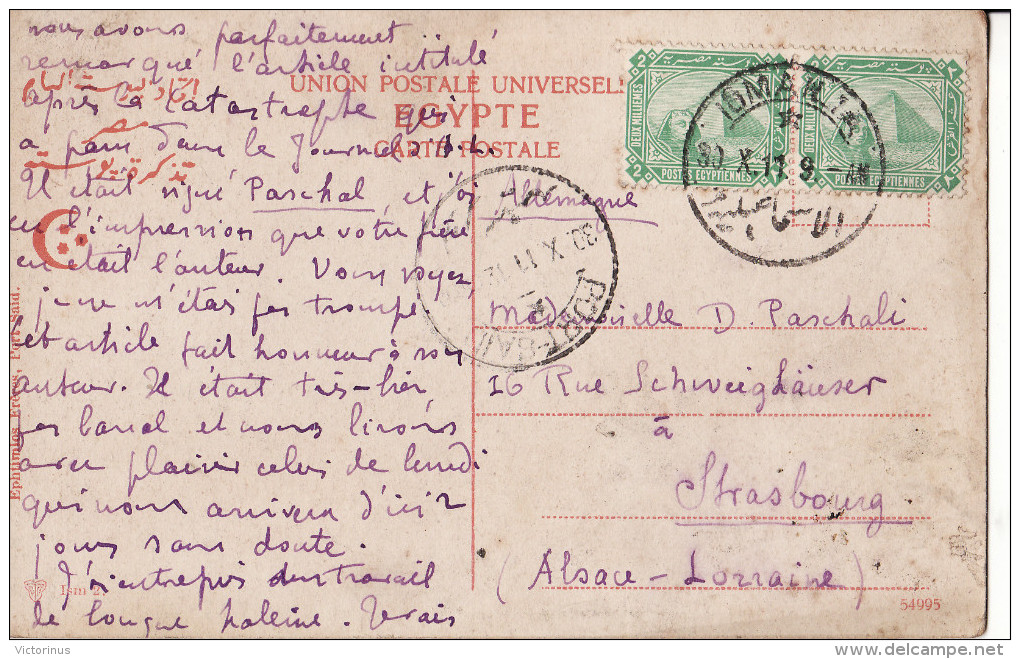 nous avons parfaitement
remarqué l'article intitulé
après la Catastrophe qui
a paru dans le Journal d'A. L.
Il était signé Paschal, et j'ai
eu l'impression que votre frère
en était l'auteur. Vous voyez,
je ne m'étais pas trompé
cet article fait honneur à son
auteur. Il était très-bien,
pas banal et nous lirons
avec plaisir celui de lundi
qui nous arrivera d'ici 2
jours sans doute.
J'ai entrepris un travail
de longue haleine.
UNION POSTALE UNIVERSELLE
EGYPTE
CARTE POSTALE
2
DEUX MILLIEMES
POSTES EGYPTIENNES
DEUX MILLIEMES
POSTES EGYPTIENNES
ISMAILIA
30 X 11 9 - AM
الاسماعيلية
PORT-SAID
30 X 11
Allemagne
Mademoiselle D. Paschali
16 Rue Schweighäuser
à
Strasbourg
(Alsace-Lorraine)
Ephtimios Frères, Port-Said.
Ism 2
54995
Victorinus
delcampe.net